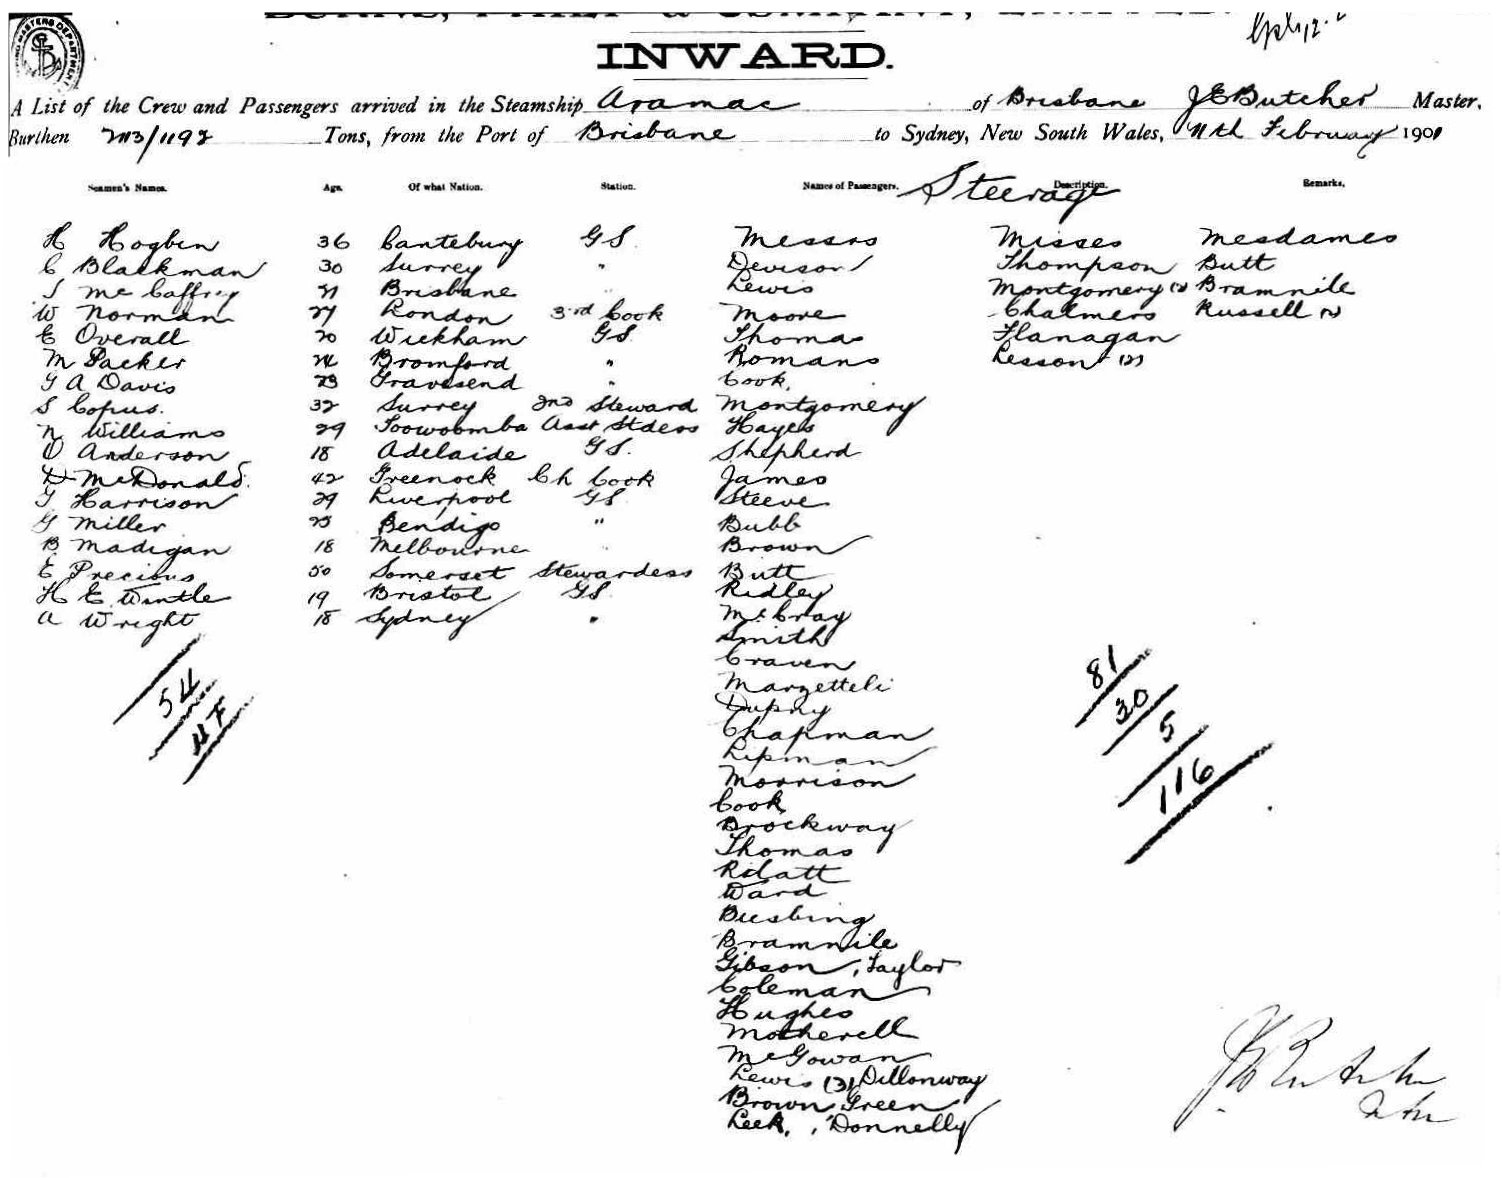 INWARD.
A List of the Crew and Passengers arrived in the Steamship Aramac of Brisbane J E Butcher Master,
Burthen 2113/1192 Tons, from the Port of Brisbane to Sydney, New South Wales, 11th February 1901
Seamen's Names. Age. Of what Nation. Station. Names of Passengers. Steerage Description. Remarks.
H Hogben 36 Cantebury G S. Messrs Misses Mesdames
C Blackman 30 Surrey " Devison Thompson Butt
J McCaffrey 21 Brisbane " Lewis Montgomery (2) Bramnile
W Norman 27 London 3rd Cook Moore Chalmers Russell (2)
E Overall 20 Wickham G S. Thomas Flanagan
M Packer 24 Bromford " Romans Lesson (2)
G A Davis 23 Gravesend " Cook.
S Copus. 32 Surrey 2nd Steward Montgomery
N Williams 29 Toowoomba Asst Stdess Hayes
O Anderson 18 Adelaide G S. Shepherd
D McDonald. 42 Greenock Ch Cook James
T Harrison 29 Liverpool G S Steeve
G Miller 23 Bendigo " Bubb
B Madigan 18 Melbourne " Brown
E Precious 50 Somerset Stewardess Butt
H E Wintle 19 Bristol G S. Ridley
A Wright 18 Sydney " McCray
Smith
Craven
Marzetteli
Dupny
Chapman
Lipman
Morrison
Cook
Brockway
Thomas
Rilatt
Ward
Biesbing
Bramnile
Gibson, Taylor
Coleman
Hughes
Motherell
McGowan
Lewis (3) Dillonway
Brown, Green
Leek, Donnelly
54
81
30
5
116